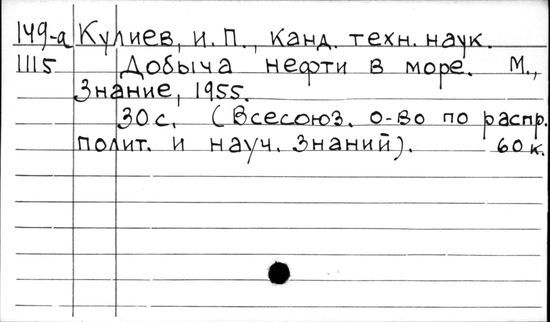 149-а Кулиев, И. П., канд. техн. наук.
1115 Добыча нефти в море. М.,
Знание, 1955.
30 с. (Всесоюз. о-во по распр.
полит. и науч. знаний). 60 к.